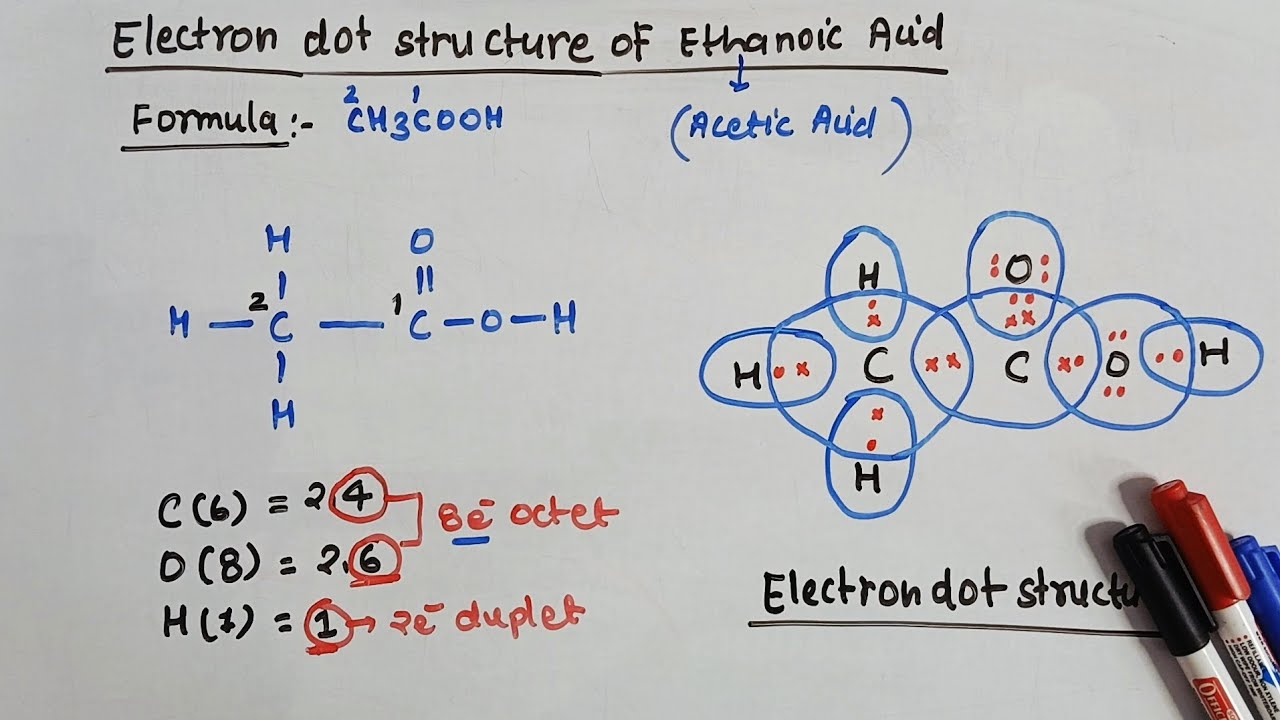 Electron dot structure of Ethanoic Acid
Formula:- CH3COOH (Acetic Acid)
2 1
H O
H – 2 C – 1 C – O – H
H
C(6) = 2 4
O(8) = 2.6
8e⁻ octet
H(1) = 1 → 2e⁻ duplet
H O
H C C O H
H
Electron dot structu